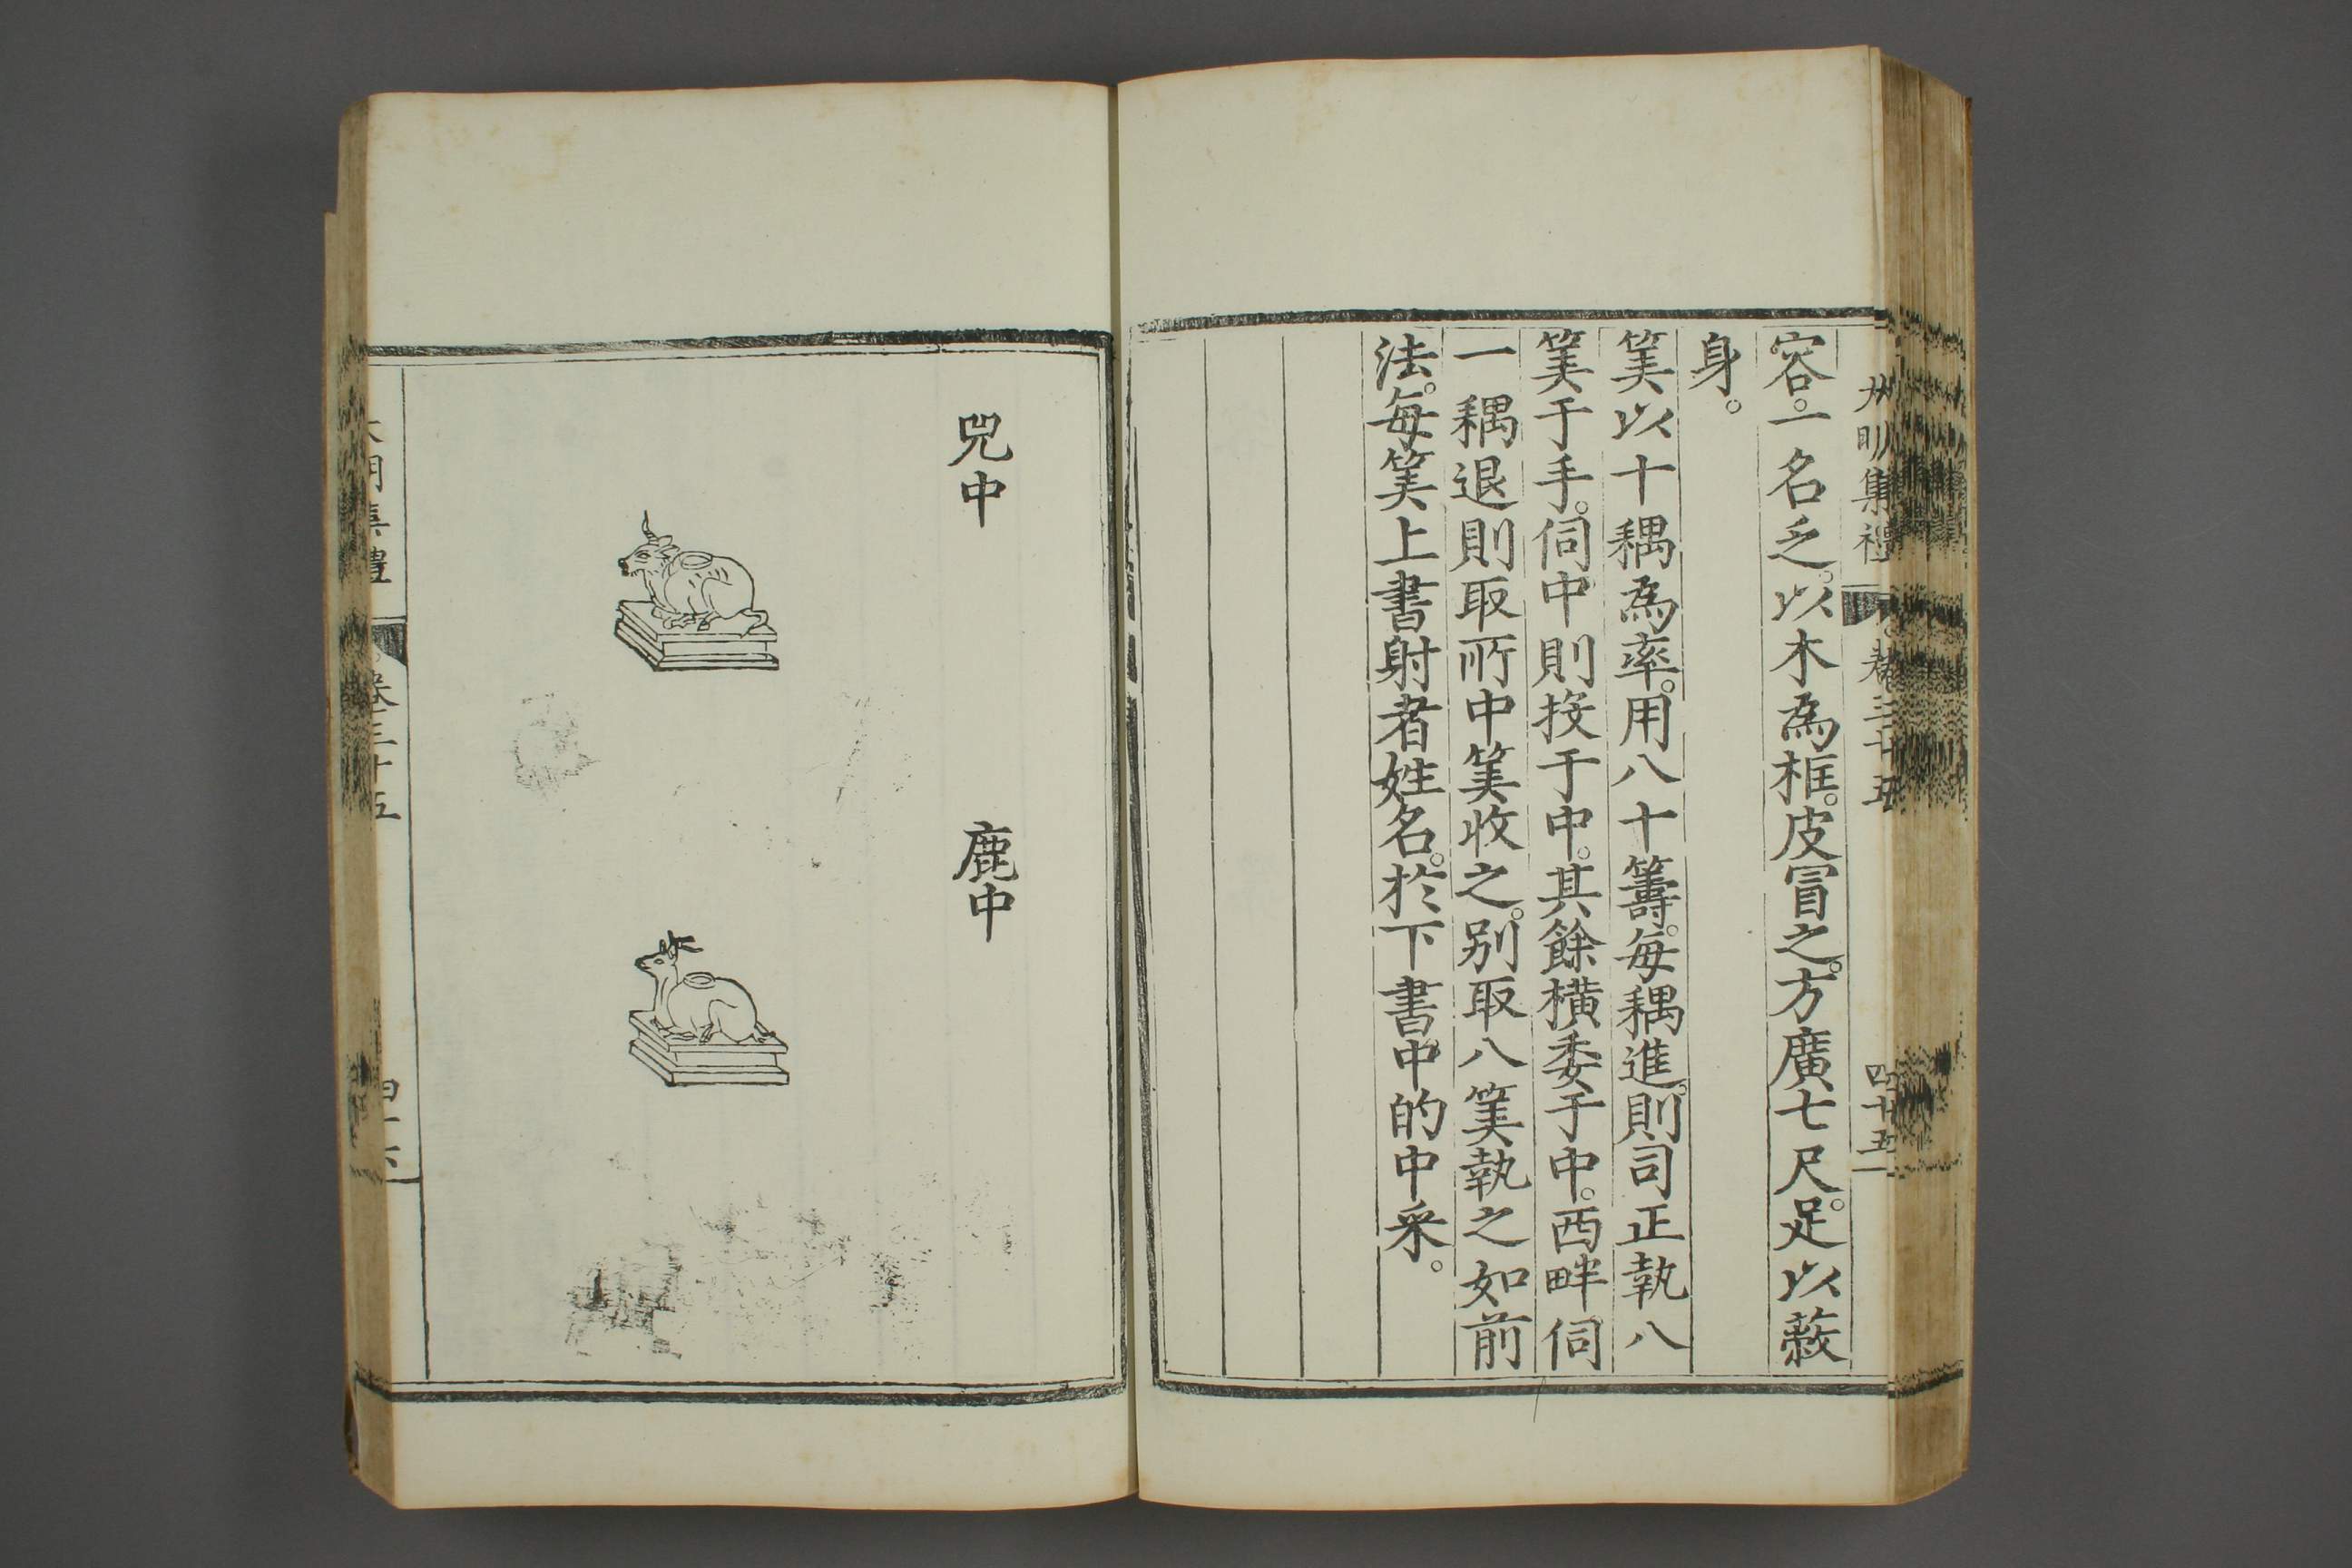 大明集禮 卷三十五 四十五
容。一名乏。以木為框。皮冒之。方廣七尺。足以蔽
身。
筭以十耦為率。用八十籌。每耦進。則司正執八
筭于手。伺中則投于中。其餘橫委于中。西畔伺
一耦退則取所中筭收之。別取八筭執之如前
法。每筭上書射者姓名。於下書中的中采。
兕中
鹿中
大明集禮 卷三十五